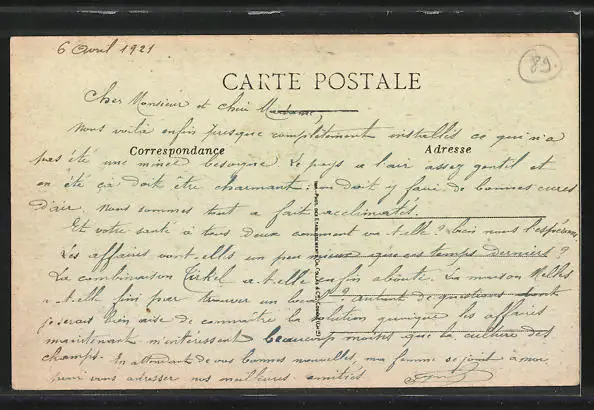 6 Avril 1921
89.
CARTE POSTALE
Cher Monsieur et chère Madame,
Nous voilà enfin presque complètement installés ce qui n'a
Correspondance
Adresse
pas été une mince besogne. Le pays a l'air assez gentil et
en été ça doit être charmant : on doit y faire de bonnes cures
d'air. Nous sommes tout a fait acclimatés.
Et votre santé à tous deux comment va-t-elle ? bien nous l'espérons.
Les affaires vont-elles un peu mieux que ces temps derniers ?
La combinaison a-t-elle enfin aboutie. La maison
a-t-elle fini par trouver un ? autant de questions dont
je serais bien aise de connaître la solution quoique les affaires
maintenant m'intéressent beaucoup moins que la culture des
champs. En attendant de vos bonnes nouvelles, ma femme se joint à moi
pour vous adresser nos meilleures amitiés